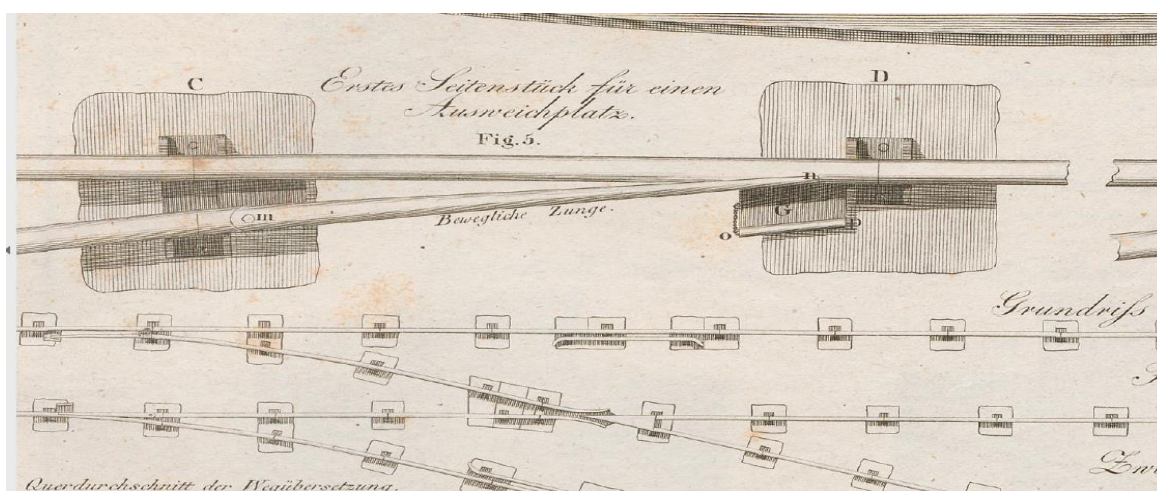 C
D
Erstes Seitenstück für einen
Ausweichplatz.
Fig. 5.
n
m
Bewegliche Zunge.
G
o
p
Grundriſs
Querdurchschnitt der Wegübersetzung.